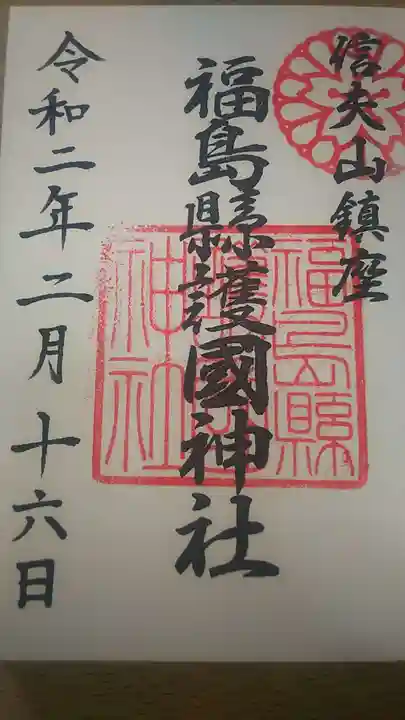 信夫山鎮座
福島縣護國神社
令和二年二月十六日
福島縣
護國
神社